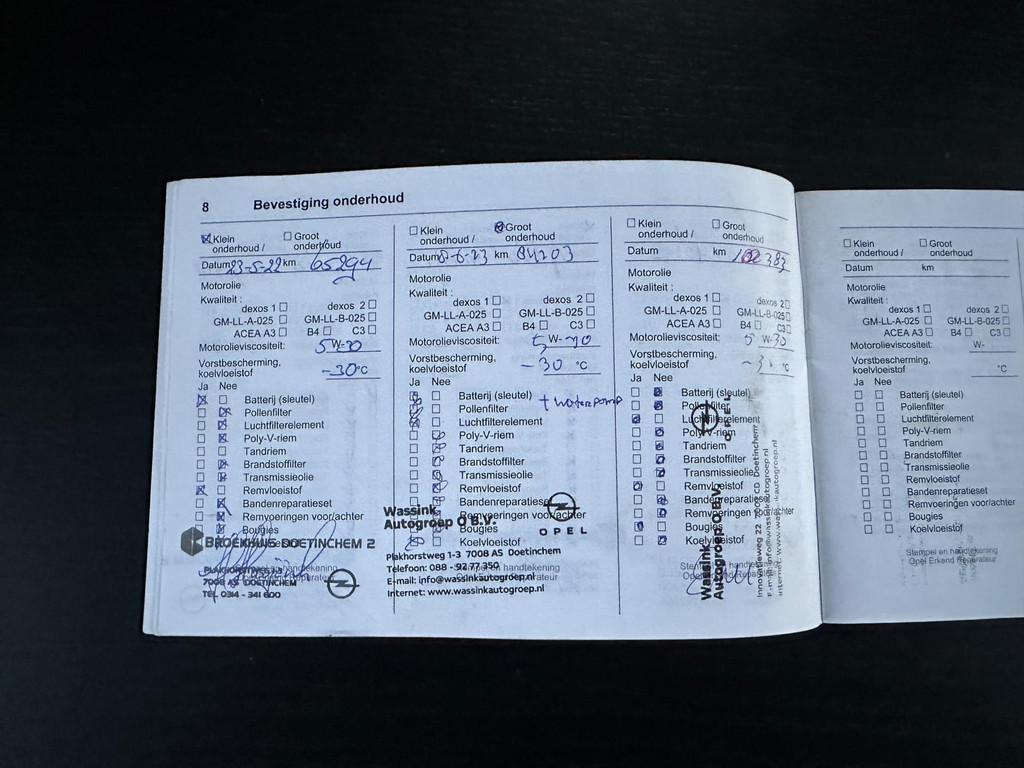 8 Bevestiging onderhoud
☒ Klein onderhoud / ☐ Groot onderhoud
Datum 23-5-22 km 65294
Motorolie
Kwaliteit :
dexos 1 ☐ dexos 2 ☐
GM-LL-A-025 ☐ GM-LL-B-025 ☐
ACEA A3 ☐ B4 ☐ C3 ☐
Motorolieviscositeit: 5W-30
Vorstbescherming,
koelvloeistof -30°C
Ja Nee
Batterij (sleutel)
Pollenfilter
Luchtfilterelement
Poly-V-riem
Tandriem
Brandstoffilter
Transmissieolie
Remvloeistof
Bandenreparatieset
Remvoeringen voor/achter
Bougies
BROEKHUIS DOETINCHEM 2
7008 AS DOETINCHEM
TEL 0314 - 341 600
☐ Klein onderhoud / ☒ Groot onderhoud
Datum 8-6-23 km 84203
Motorolie
Kwaliteit :
dexos 1 ☐ dexos 2 ☐
GM-LL-A-025 ☐ GM-LL-B-025 ☐
ACEA A3 ☐ B4 ☐ C3 ☐
Motorolieviscositeit: 5 W-
Vorstbescherming,
koelvloeistof -30 °C
Ja Nee
Batterij (sleutel)
+ waterpomp
Pollenfilter
Luchtfilterelement
Poly-V-riem
Tandriem
Brandstoffilter
Transmissieolie
Remvloeistof
Bandenreparatieset
Remvoeringen voor/achter
Bougies
Koelvloeistof
Wassink
Autogroep O B.V.
OPEL
Plakhorstweg 1-3 7008 AS Doetinchem
Telefoon: 088 - 92 77 350
E-mail: info@wassinkautogroep.nl
Internet: www.wassinkautogroep.nl
☐ Klein onderhoud / ☐ Groot onderhoud
Datum km 102383
Motorolie
Kwaliteit :
dexos 1 ☐ dexos 2 ☐
GM-LL-A-025 ☐ GM-LL-B-025 ☐
ACEA A3 ☐ B4 ☐ C3 ☐
Motorolieviscositeit: 5 W-30
Vorstbescherming,
koelvloeistof °C
Ja Nee
Batterij (sleutel)
Pollenfilter
Luchtfilterelement
Poly-V-riem
Tandriem
Brandstoffilter
Transmissieolie
Remvloeistof
Bandenreparatieset
Remvoeringen voor/achter
Bougies
Koelvloeistof
Wassink
Autogroep O B.V.
OPEL
☐ Klein onderhoud / ☐ Groot onderhoud
Datum km
Motorolie
Kwaliteit :
dexos 1 ☐ dexos 2 ☐
GM-LL-A-025 ☐ GM-LL-B-025 ☐
ACEA A3 ☐ B4 ☐ C3 ☐
Motorolieviscositeit: W-
Vorstbescherming,
koelvloeistof °C
Ja Nee
Batterij (sleutel)
Pollenfilter
Luchtfilterelement
Poly-V-riem
Tandriem
Brandstoffilter
Transmissieolie
Remvloeistof
Bandenreparatieset
Remvoeringen voor/achter
Bougies
Koelvloeistof
Stempel en handtekening
Opel Erkend Reparateur